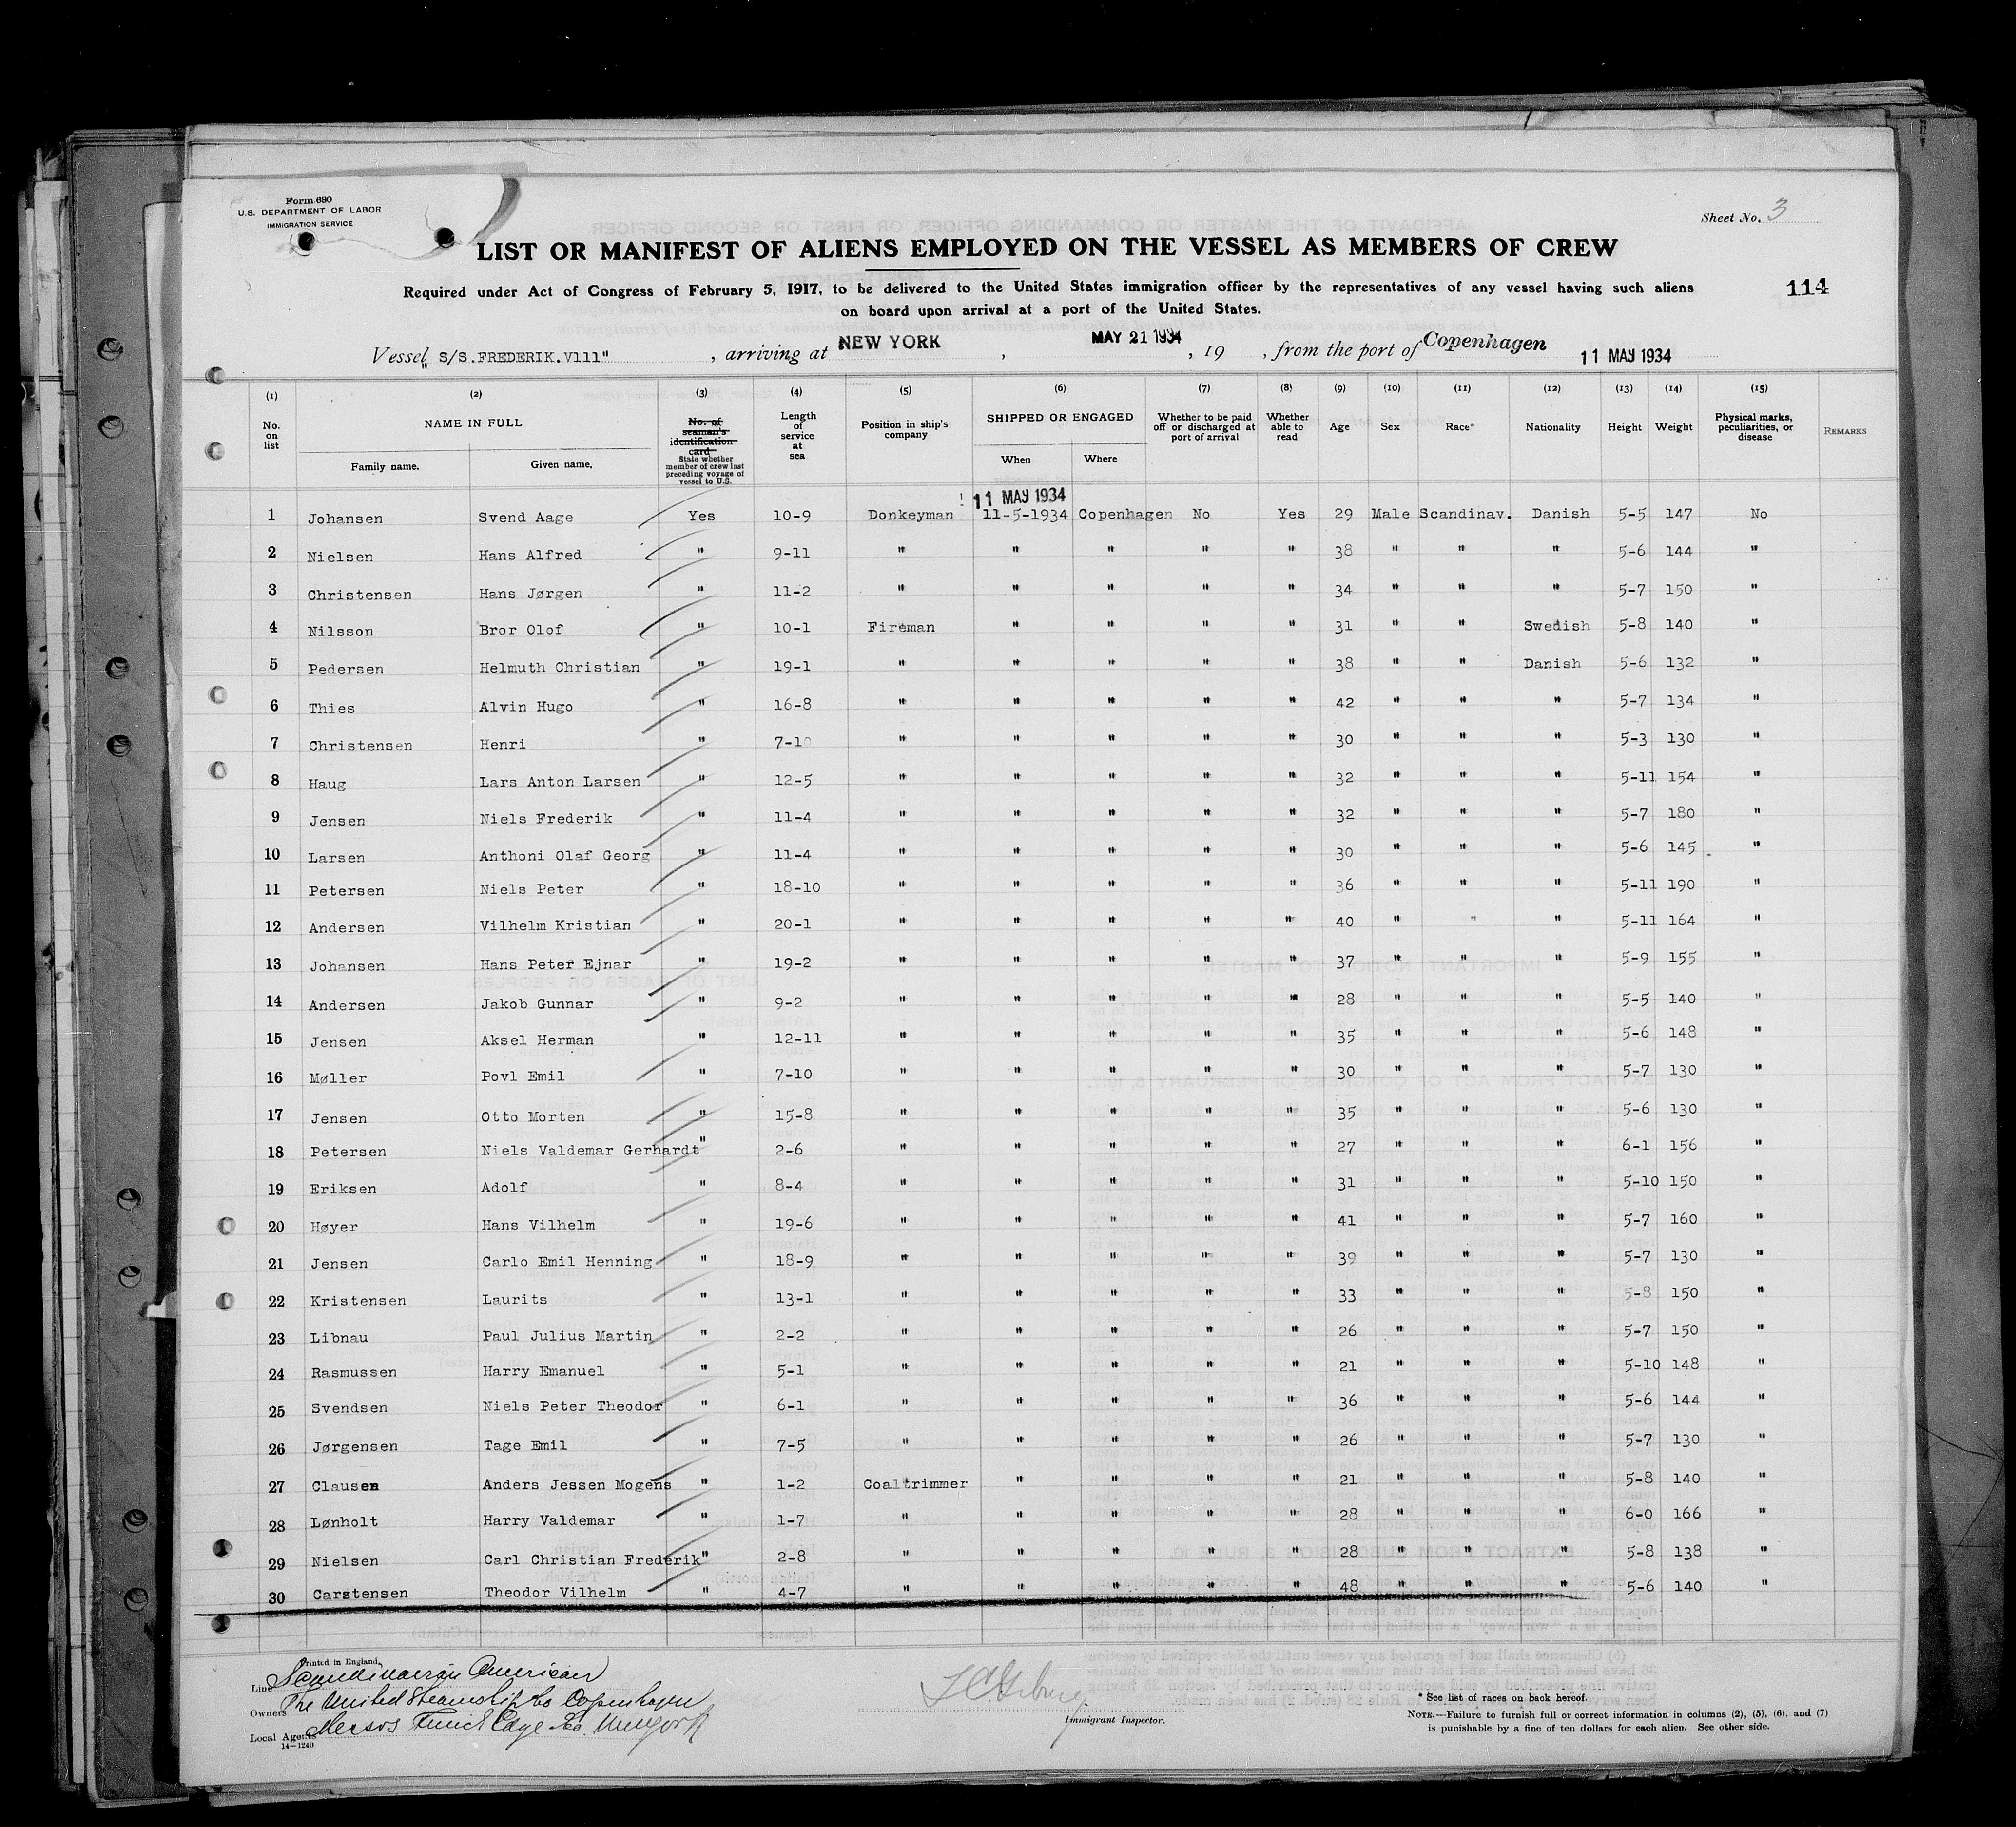 Form 680
U.S. DEPARTMENT OF LABOR
IMMIGRATION SERVICE
Sheet No. 3
LIST OR MANIFEST OF ALIENS EMPLOYED ON THE VESSEL AS MEMBERS OF CREW
Required under Act of Congress of February 5, 1917, to be delivered to the United States immigration officer by the representatives of any vessel having such aliens
on board upon arrival at a port of the United States.
114
Vessel "S/S.FREDERIK.V111" , arriving at NEW YORK , MAY 21 1934 , 19 , from the port of Copenhagen 11 MAY 1934
(1) (2) (3) (4) (5) (6) (7) (8) (9) (10) (11) (12) (13) (14) (15)
No. on list NAME IN FULL Family name. Given name. No. of seaman's identification card State whether member of crew last preceding voyage of vessel to U.S. Length of service at sea Position in ship's company SHIPPED OR ENGAGED When Where Whether to be paid off or discharged at port of arrival Whether able to read Age Sex Race* Nationality Height Weight Physical marks, peculiarities, or disease REMARKS
11 MAY 1934
1 Johansen Svend Aage Yes 10-9 Donkeyman 11-5-1934 Copenhagen No Yes 29 Male Scandinav. Danish 5-5 147 No
2 Nielsen Hans Alfred " 9-11 " " " " " 38 " " " 5-6 144 "
3 Christensen Hans Jørgen " 11-2 " " " " " 34 " " " 5-7 150 "
4 Nilsson Bror Olof " 10-1 Fireman " " " " 31 " " Swedish 5-8 140 "
5 Pedersen Helmuth Christian " 19-1 " " " " " 38 " " Danish 5-6 132 "
6 Thies Alvin Hugo " 16-8 " " " " " 42 " " " 5-7 134 "
7 Christensen Henri " 7-10 " " " " " 30 " " " 5-3 130 "
8 Haug Lars Anton Larsen " 12-5 " " " " " 32 " " " 5-11 154 "
9 Jensen Niels Frederik " 11-4 " " " " " 32 " " " 5-7 180 "
10 Larsen Anthoni Olaf Georg " 11-4 " " " " " 30 " " " 5-6 145 "
11 Petersen Niels Peter " 18-10 " " " " " 36 " " " 5-11 190 "
12 Andersen Vilhelm Kristian " 20-1 " " " " " 40 " " " 5-11 164 "
13 Johansen Hans Peter Ejnar " 19-2 " " " " " 37 " " " 5-9 155 "
14 Andersen Jakob Gunnar " 9-2 " " " " " 28 " " " 5-5 140 "
15 Jensen Aksel Herman " 12-11 " " " " " 35 " " " 5-6 148 "
16 Møller Povl Emil " 7-10 " " " " " 30 " " " 5-7 130 "
17 Jensen Otto Morten " 15-8 " " " " " 35 " " " 5-6 130 "
18 Petersen Niels Valdemar Gerhardt " 2-6 " " " " " 27 " " " 6-1 156 "
19 Eriksen Adolf " 8-4 " " " " " 31 " " " 5-10 150 "
20 Høyer Hans Vilhelm " 19-6 " " " " " 41 " " " 5-7 160 "
21 Jensen Carlo Emil Henning " 18-9 " " " " " 39 " " " 5-7 130 "
22 Kristensen Laurits " 13-1 " " " " " 33 " " " 5-8 150 "
23 Libnau Paul Julius Martin " 2-2 " " " " " 26 " " " 5-7 150 "
24 Rasmussen Harry Emanuel " 5-1 " " " " " 21 " " " 5-10 148 "
25 Svendsen Niels Peter Theodor " 6-1 " " " " " 36 " " " 5-6 144 "
26 Jørgensen Tage Emil " 7-5 " " " " " 26 " " " 5-7 130 "
27 Clausen Anders Jessen Mogens " 1-2 Coaltrimmer " " " " 21 " " " 5-8 140 "
28 Lønholt Harry Valdemar " 1-7 " " " " " 28 " " " 6-0 166 "
29 Nielsen Carl Christian Frederik " 2-8 " " " " " 28 " " " 5-8 138 "
30 Carstensen Theodor Vilhelm " 4-7 " " " " " 48 " " " 5-6 140 "
Printed in England.
Line Scandinavian American
Owners The United Steamship Co Copenhagen
Local Agents Messrs Funch Edye Co. New York
14-1240
Immigrant Inspector.
* See list of races on back hereof.
NOTE.—Failure to furnish full or correct information in columns (2), (5), (6), and (7)
is punishable by a fine of ten dollars for each alien. See other side.